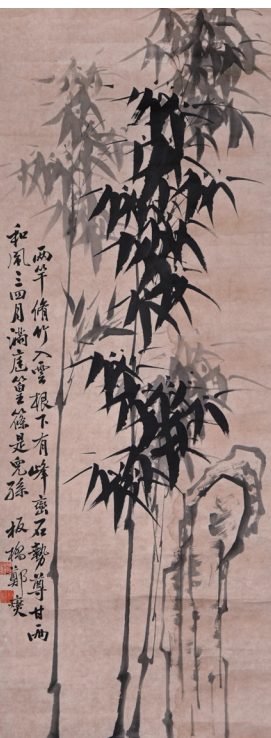 兩竿脩竹入雲根下有峰巒石勢尊甘雨
和風三四月滿庭篁篠是兒孫 板橋鄭燮